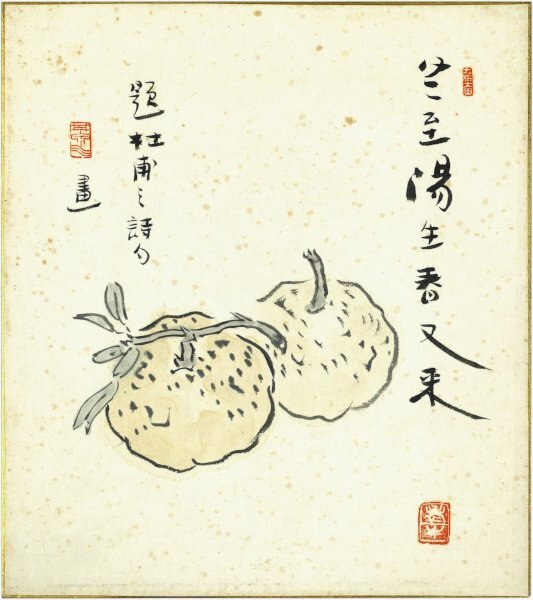 冬至陽生春又来
題杜甫之詩句
畫